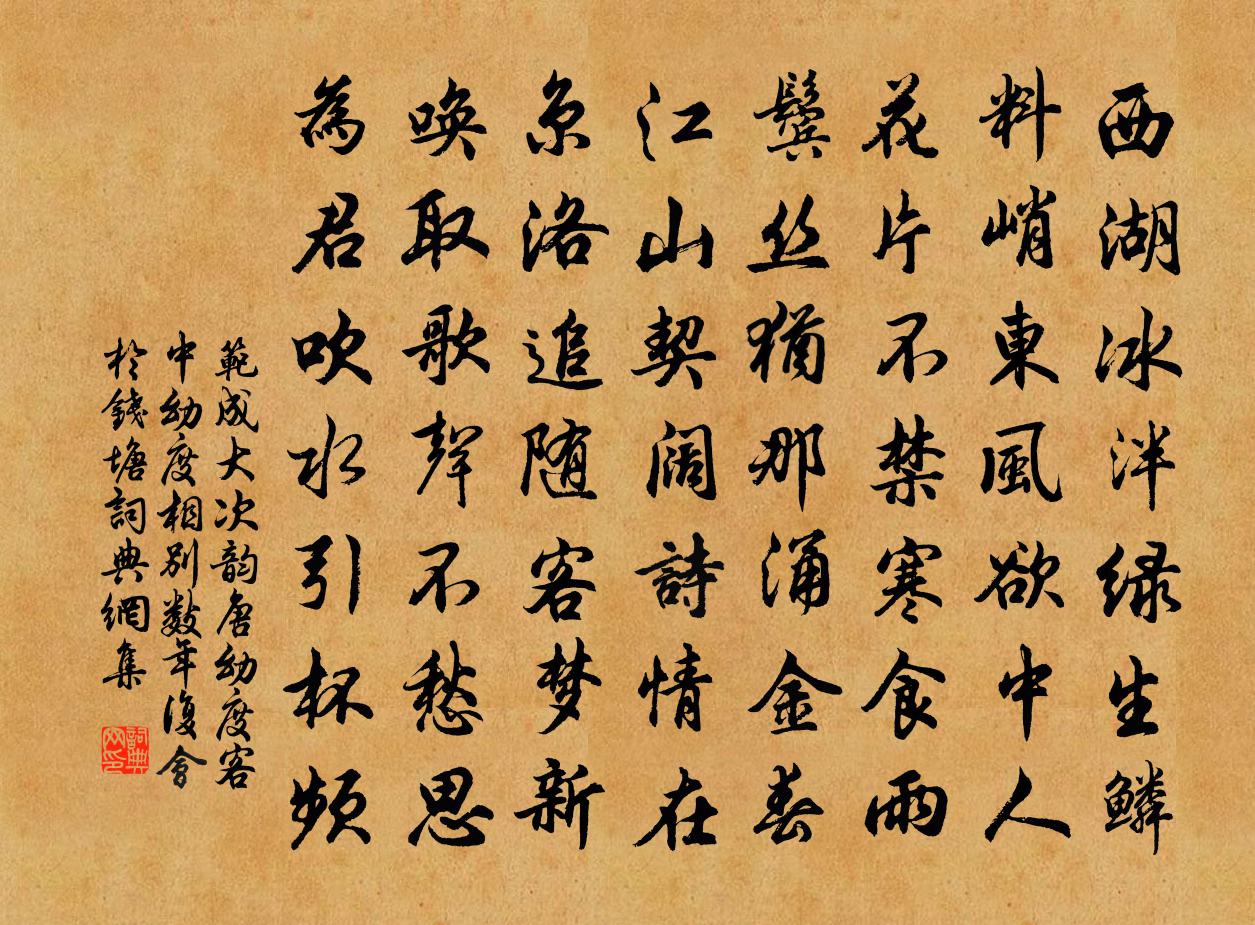 西湖冰泮绿生鳞
料峭東風欲中人
花片不禁寒食雨
鬓丝猶那涌金春
江山契阔詩情在
京洛追随客梦新
唤取歌聲不愁思
為君吹水引杯频
範成大次韵唐幼度客
中幼度相别数年復會
於錢塘詞典網集
詞典网印